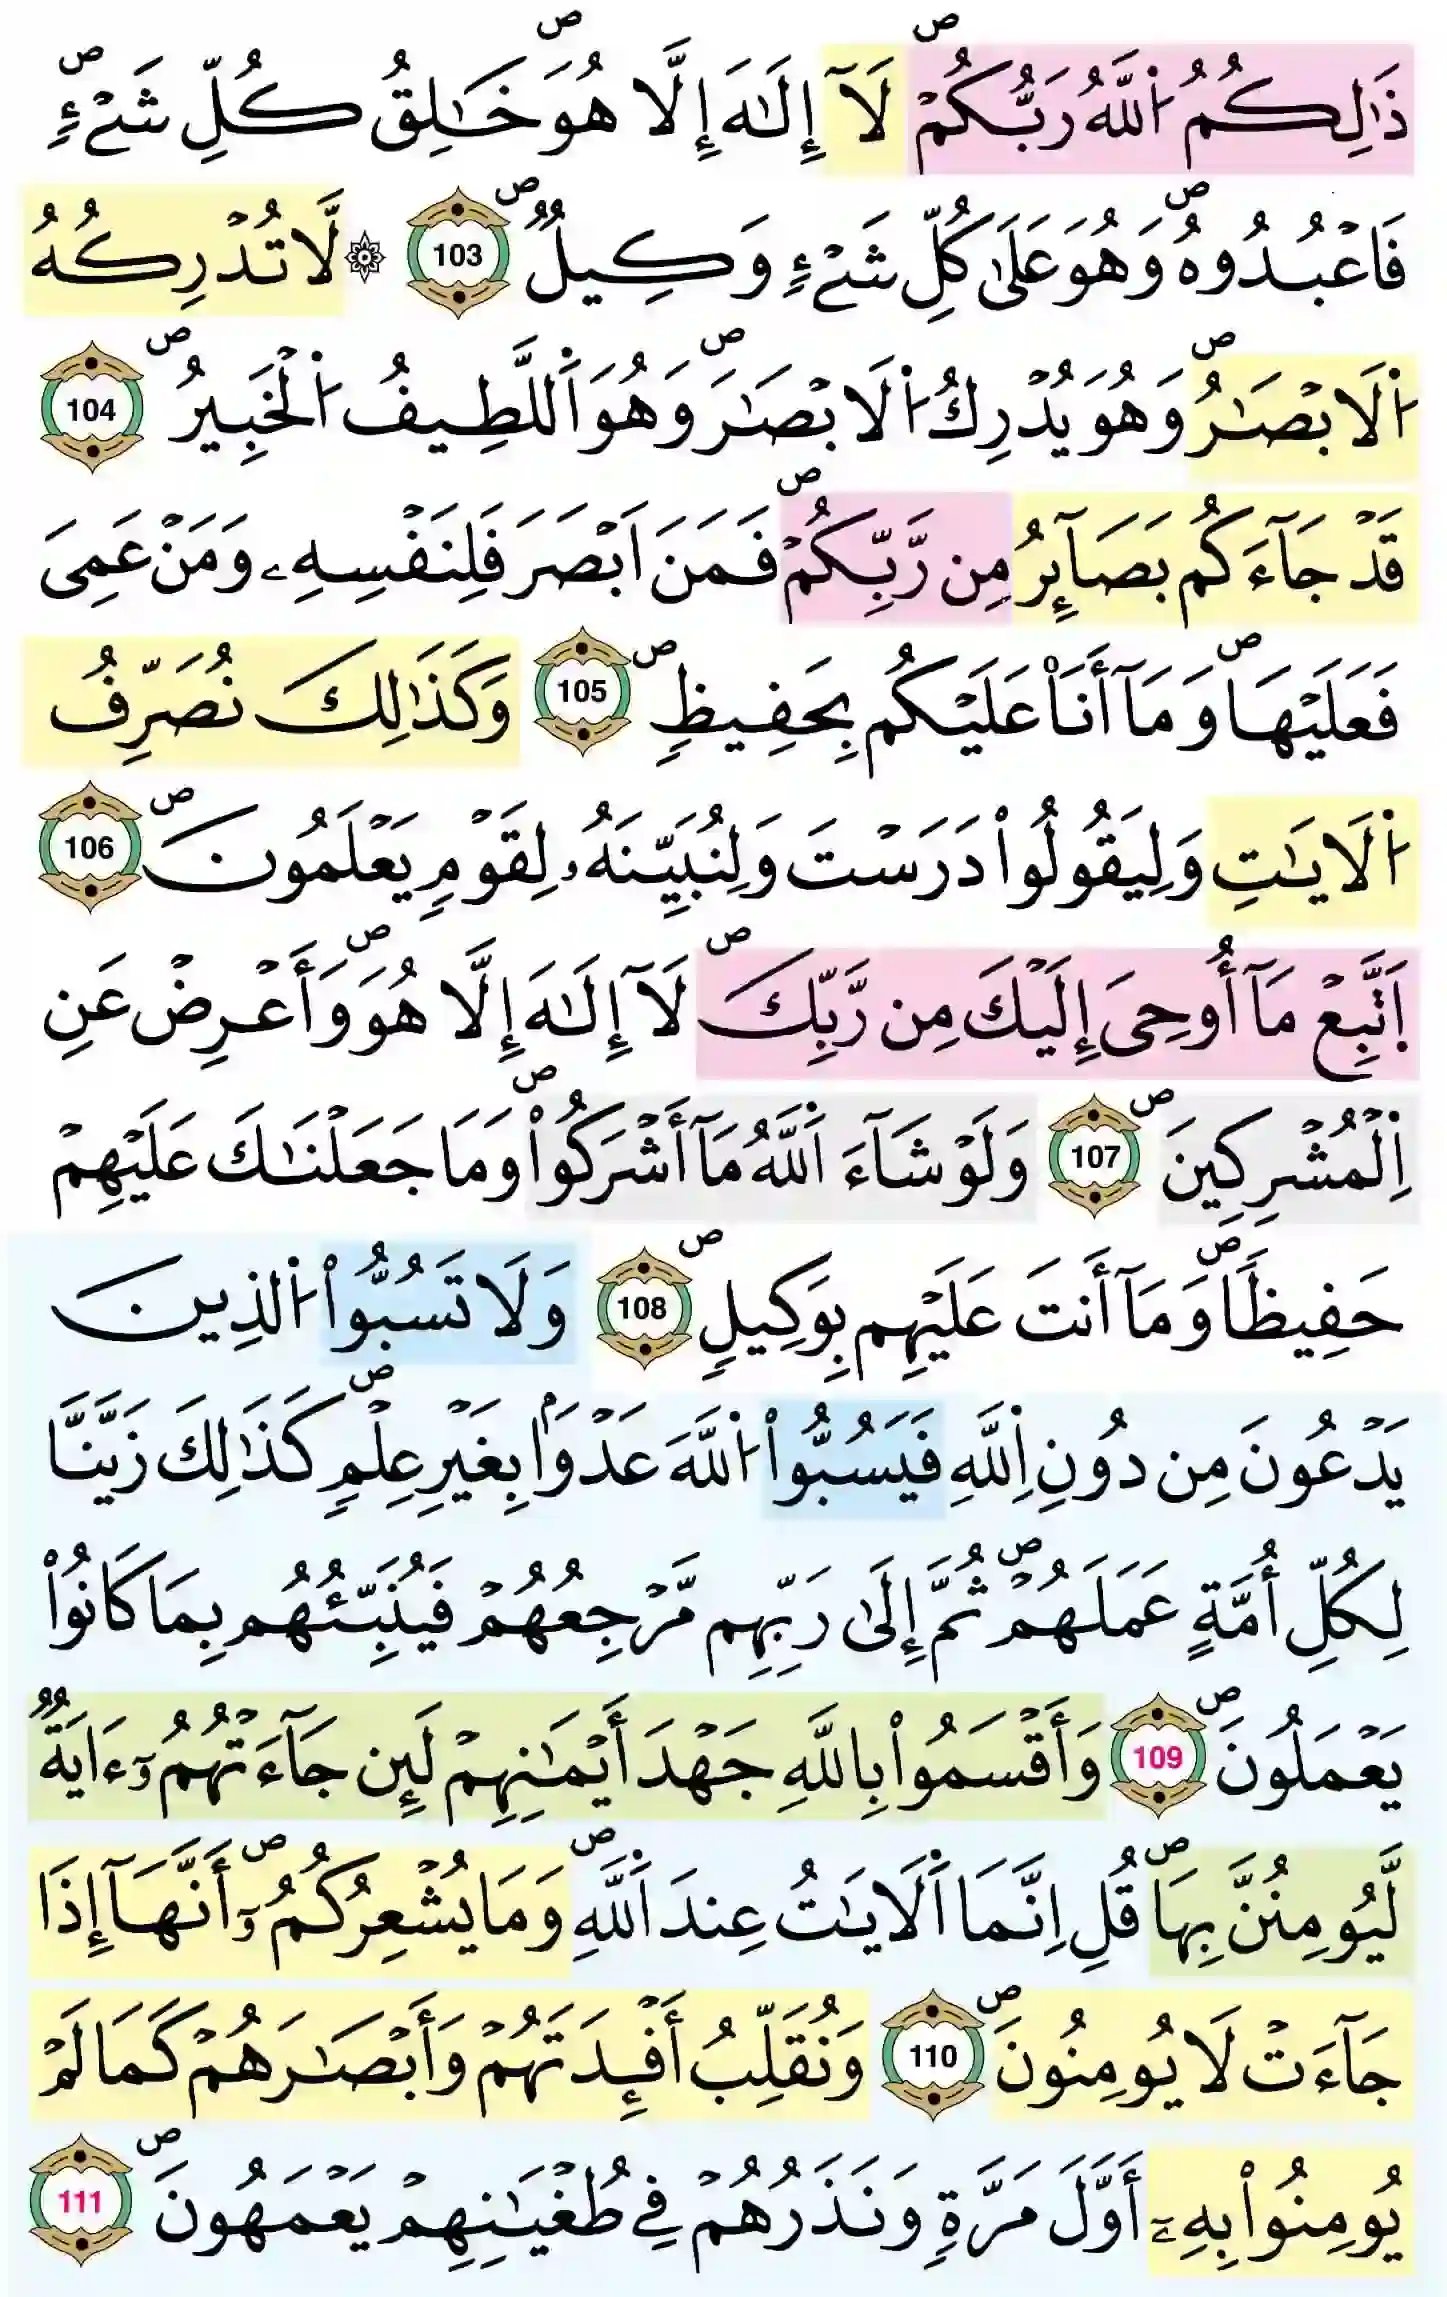 ذَٰلِكُمُ اُ۬للَّهُ رَبُّكُمْۖ لَآ إِلَٰهَ إِلَّا هُوَۖ خَٰلِقُ كُلِّ شَےْءٖۖ
فَاعْبُدُوهُۖ وَهُوَ عَلَىٰ كُلِّ شَےْءٖ وَكِيلٞۖ 103 ۞ لَّا تُدْرِكُهُ
اُ۬لَابْصَٰرُۖ وَهُوَ يُدْرِكُ اُ۬لَابْصَٰرَۖ وَهُوَ اَ۬للَّطِيفُ اُ۬لْخَبِيرُۖ 104
قَدْ جَآءَكُم بَصَآئِرُ مِن رَّبِّكُمْۖ فَمَنَ اَبْصَرَ فَلِنَفْسِهِۦ وَمَنْ عَمِيَ
فَعَلَيْهَاۖ وَمَآ أَنَا۠ عَلَيْكُم بِحَفِيظٖۖ 105 وَكَذَٰلِكَ نُصَرِّفُ
اُ۬لَايَٰتِ وَلِيَقُولُواْ دَرَسْتَ وَلِنُبَيِّنَهُۥ لِقَوْمٖ يَعْلَمُونَۖ 106
اَ۪تَّبِعْ مَآ أُوحِيَ إِلَيْكَ مِن رَّبِّكَۖ لَآ إِلَٰهَ إِلَّا هُوَۖ وَأَعْرِضْ عَنِ
اِ۬لْمُشْرِكِينَۖ 107 وَلَوْ شَآءَ اَ۬للَّهُ مَآ أَشْرَكُواْۖ وَمَا جَعَلْنَٰكَ عَلَيْهِمْ
حَفِيظاٗۖ وَمَآ أَنتَ عَلَيْهِم بِوَكِيلٖۖ 108 وَلَا تَسُبُّواْ اُ۬لذِينَ
يَدْعُونَ مِن دُونِ اِ۬للَّهِ فَيَسُبُّواْ اُ۬للَّهَ عَدْوَاۢ بِغَيْرِ عِلْمٖۖ كَذَٰلِكَ زَيَّنَّا
لِكُلِّ أُمَّةٍ عَمَلَهُمْۖ ثُمَّ إِلَىٰ رَبِّهِم مَّرْجِعُهُمْ فَيُنَبِّئُهُم بِمَا كَانُواْ
يَعْمَلُونَۖ 109 وَأَقْسَمُواْ بِاللَّهِ جَهْدَ أَيْمَٰنِهِمْ لَئِن جَآءَتْهُمُۥٓ ءَايَةٞ
لَّيُومِنُنَّ بِهَاۖ قُلِ اِنَّمَا اَ۬لَايَٰتُ عِندَ اَ۬للَّهِۖ وَمَا يُشْعِرُكُمُۥٓۖ أَنَّهَآ إِذَا
جَآءَتْ لَا يُومِنُونَۖ 110 وَنُقَلِّبُ أَفْـِٕدَتَهُمْ وَأَبْصَٰرَهُمْ كَمَا لَمْ
يُومِنُواْ بِهِۦٓ أَوَّلَ مَرَّةٖ وَنَذَرُهُمْ فِے طُغْيَٰنِهِمْ يَعْمَهُونَۖ 111